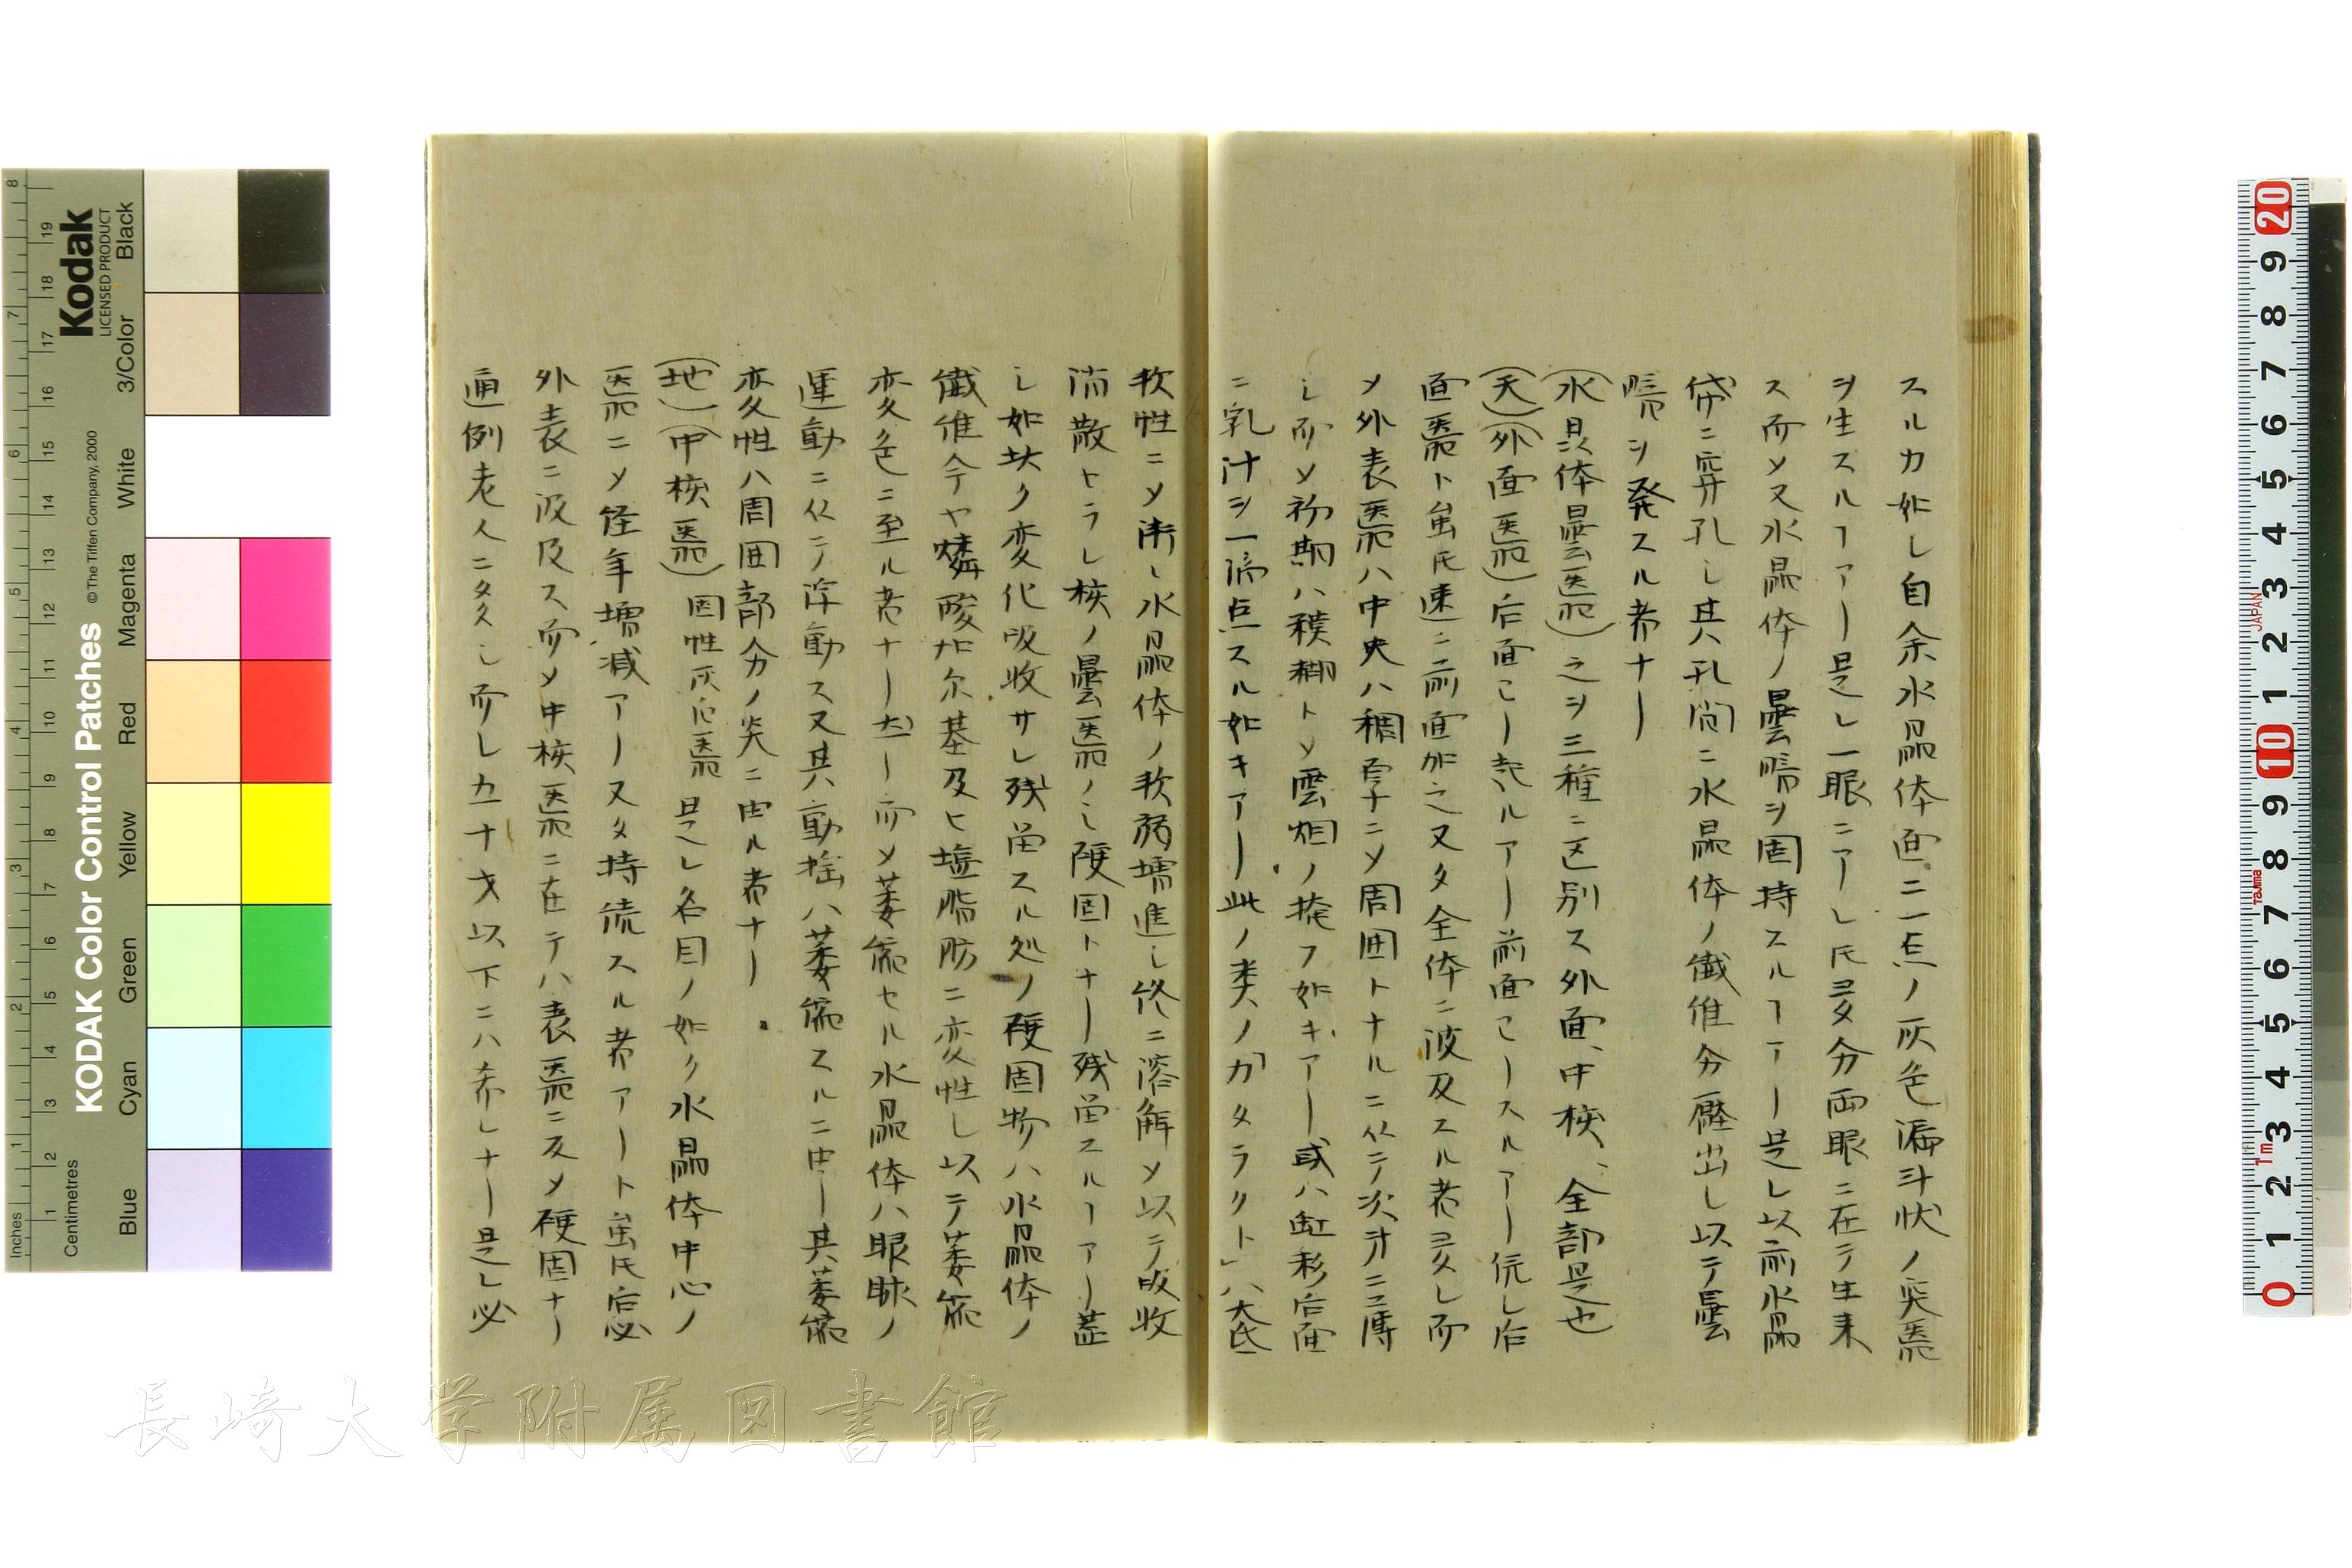 スルカ如レ自余水晶体面ニ一点ノ灰色漏斗状ノ突翳
ヲ生スルヿアリ是レ一眼ニアレ𪜈多分両眼ニ在テ生来
ス而〆又水晶体ノ曇暗ヲ固持スルヿアリ是レ以前水晶
袋ニ穿孔シ其孔間ニ水晶体ノ繊維分壓出シ以テ曇
暗ヲ発スル者ナリ
(水晶体曇翳)之ヲ三種ニ区別ス外面、中核、全部是也
(天)(外面翳)后面ニ起ルアリ前面ニスルアリ伉レ后
面翳ト虽𪜈速ニ前面加之又タ全体ニ波及スル者多シ而
〆外表翳ハ中央ハ稠厚ニ〆周囲トナルニ从テ次才ニ薄
シ而〆初期ハ糢糊ト〆雲烟ノ掩フ如キアリ或ハ虹彩后面
ニ乳汁ヲ一滴点スル如キアリ此ノ类ノ「カタラクト」ハ大氐
軟性ニ〆漸ク水晶体ノ軟弱増進シ終ニ溶解〆以テ吸收
流散セラレ核ノ曇翳ノミ硬固トナリ残留スルヿアリ蓋
シ如此ク変化吸收サレ残留スル処ノ硬固物ハ水晶体ノ
繊維今ヤ燐酸加尓基及ヒ塩脂肪ニ変性シ以テ萎縮
変色ニ至ル者ナリ故ニ而〆萎縮セル水晶体ハ眼眹ノ
運動ニ从テ浮動ス又其動揺ハ萎縮スルニ由リ其萎縮
変性ハ周囲部分ノ炎ニ由ル者ナリ
(地)(中核翳)固性灰色翳 是レ名目ノ如ク水晶体中心ノ
翳ニ〆経年増减アリ又タ持続スル者アリト虽𪜈后必
外表ニ波及ス而〆中核翳ニ在テハ表翳ニ反〆硬固ナリ
通例老人ニ多シ而レ𪜈五十才以下ニハ希レナリ是レ必
KODAK Color Control Patches
© The Tiffen Company, 2000
Kodak
LICENSED PRODUCT
Inches
Centimetres
Blue Cyan Green Yellow Red Magenta White 3/Color Black
長崎大学附属図書館